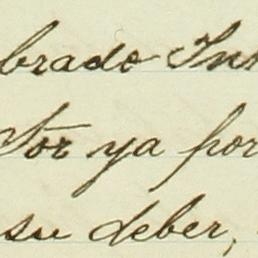 brado Ins
tor ya por
su deber,